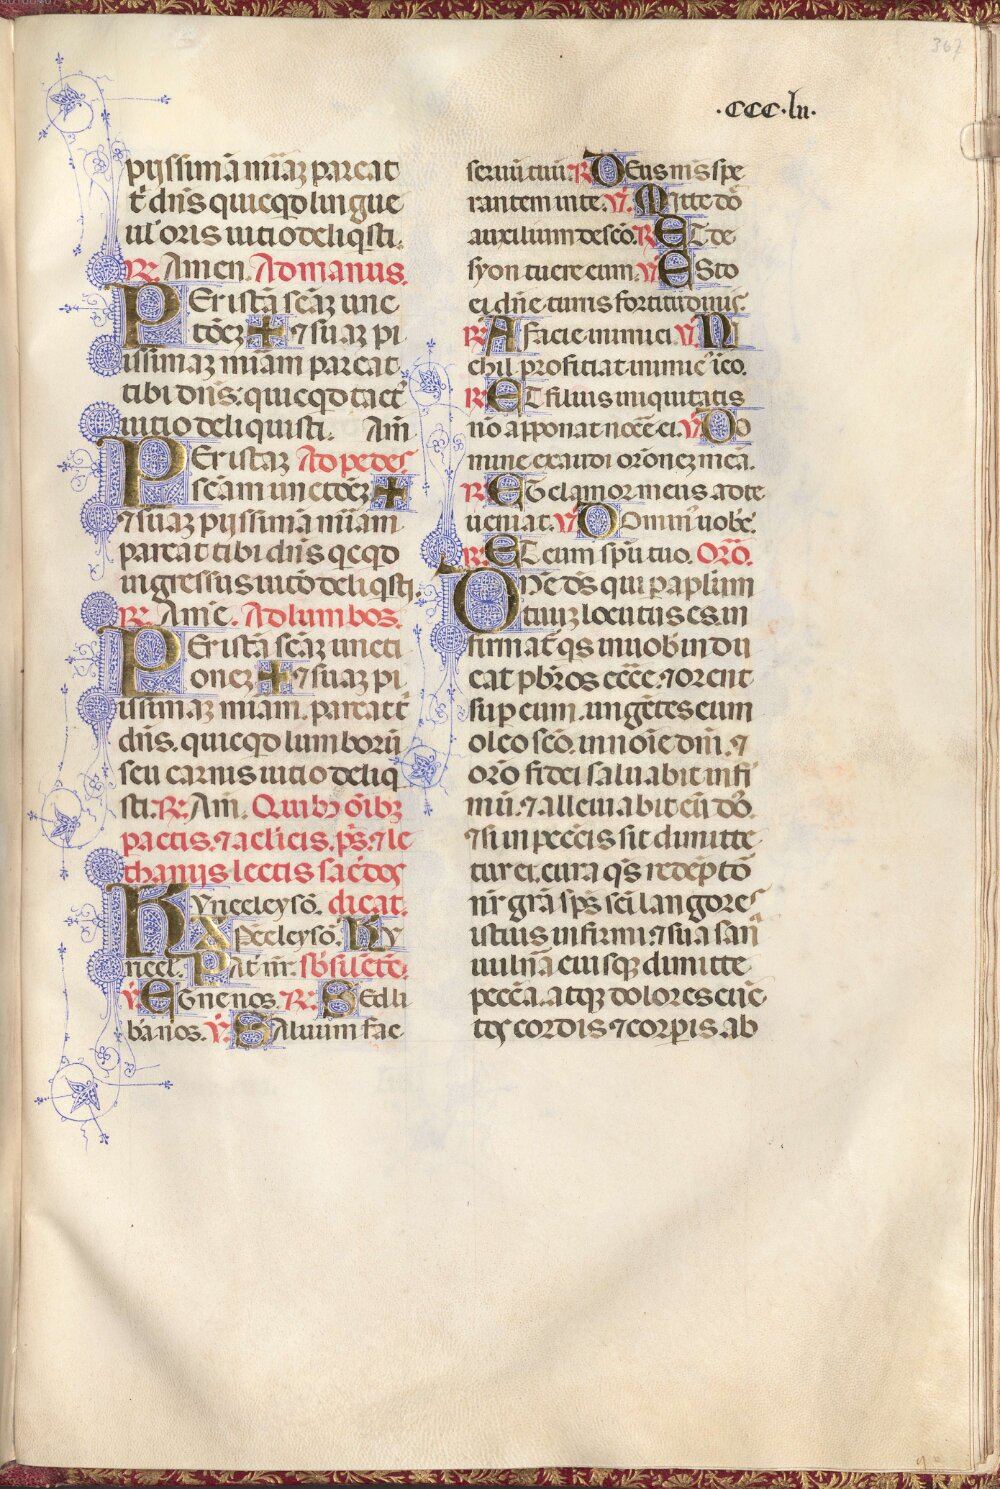 367
·CCC·lii·
piissimā mīaʒ parcat
t̄ dn̄s quicqd lingue
ul' oris uitio deliq̄sti.
R̸. Amen. Ad manus.
PEr istā scāʒ unc
tōeʒ ✠ ⁊ suaʒ pi
issimaʒ miām parcat
tibi dn̄s: quicqd tact̄
uitio deliquisti. Am̄
PEr istaʒ Ad pedes
scām unctōeʒ ✠
⁊ suaʒ piissimā miām
parcat tibi dn̄s qcqd
ingressus uitō deliq̄sti.
R̸. Amē. Ad lumbos.
PEr istā scāʒ uncti
oneʒ ✠ ⁊ suaʒ pi
issimaʒ miam. parcat t̄
dn̄s. quicqd lumborū
seu carnis uitio deliq
sti. R̸. Am̄. Quibʒ oībʒ
pactis. ⁊ aclicis. ps̄. ⁊ le
thaniis lectis sac̄dos
Kyrieeleysō. dicat.
XPeeleysō. Ky
rieel. Pat̄ nr̄. sb silētō.
V̸. Et ne nos. R̸. Sed li
bā nos. V̸. Saluum fac
seruū tuū. R̸. Deus ms̄ spe
rantem in te. V̸. Mitte dō
auxilium de scō. R̸. Et de
syon tuere eum. V̸. Esto
ei dn̄e turris fortitudinis.
R̸. A facie inimici V̸. Ni
chil proficiat inimic' ī eo.
R̸. Et filius iniquitatis
nō apponat nocē ei. V̸. Do
mine exaudi orōneʒ meā.
R̸. Et clamor meus ad te
ueniat. V̸. Dominꝰ uobc̄.
R̸. Et cum spū tuo. Orō.
DNe ds̄ qui p aplum
tuuʒ locutus es. in
firmat̄ qs in uob' indu
cat pbr̄os eccc̄. ⁊ orent
sup eum. ungētes eum
oleo scō. in noīe dn̄i. ⁊
orō fidei saluabit infi'
mū. ⁊ alleuiabit eū dō.
⁊ si in pccīs sit dimitte
tur ei. cura qs̄ redēptō
nr̄ grā sps̄ sc̄i langores
istius infirmi. ⁊ sua san
uulnā eiusqʒ dimitte
peccā. atqʒ dolores cūc
tos cordis ⁊ corpis ab